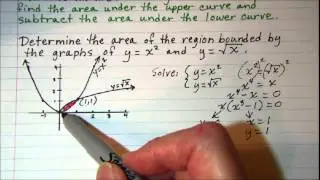 find the area under the upper curve and
subtract the area under the lower curve.
Determine the area of the region bounded by
the graphs of y = x² and y = √x.
Solve: { y = x²
y = √x
(x²)² = (√x)²
x⁴ = x
x⁴ - x = 0
x(x³-1) = 0
x = 0
x = 1
y = 0
y = 1
y=√x
(1,1)
-1
2
3
4